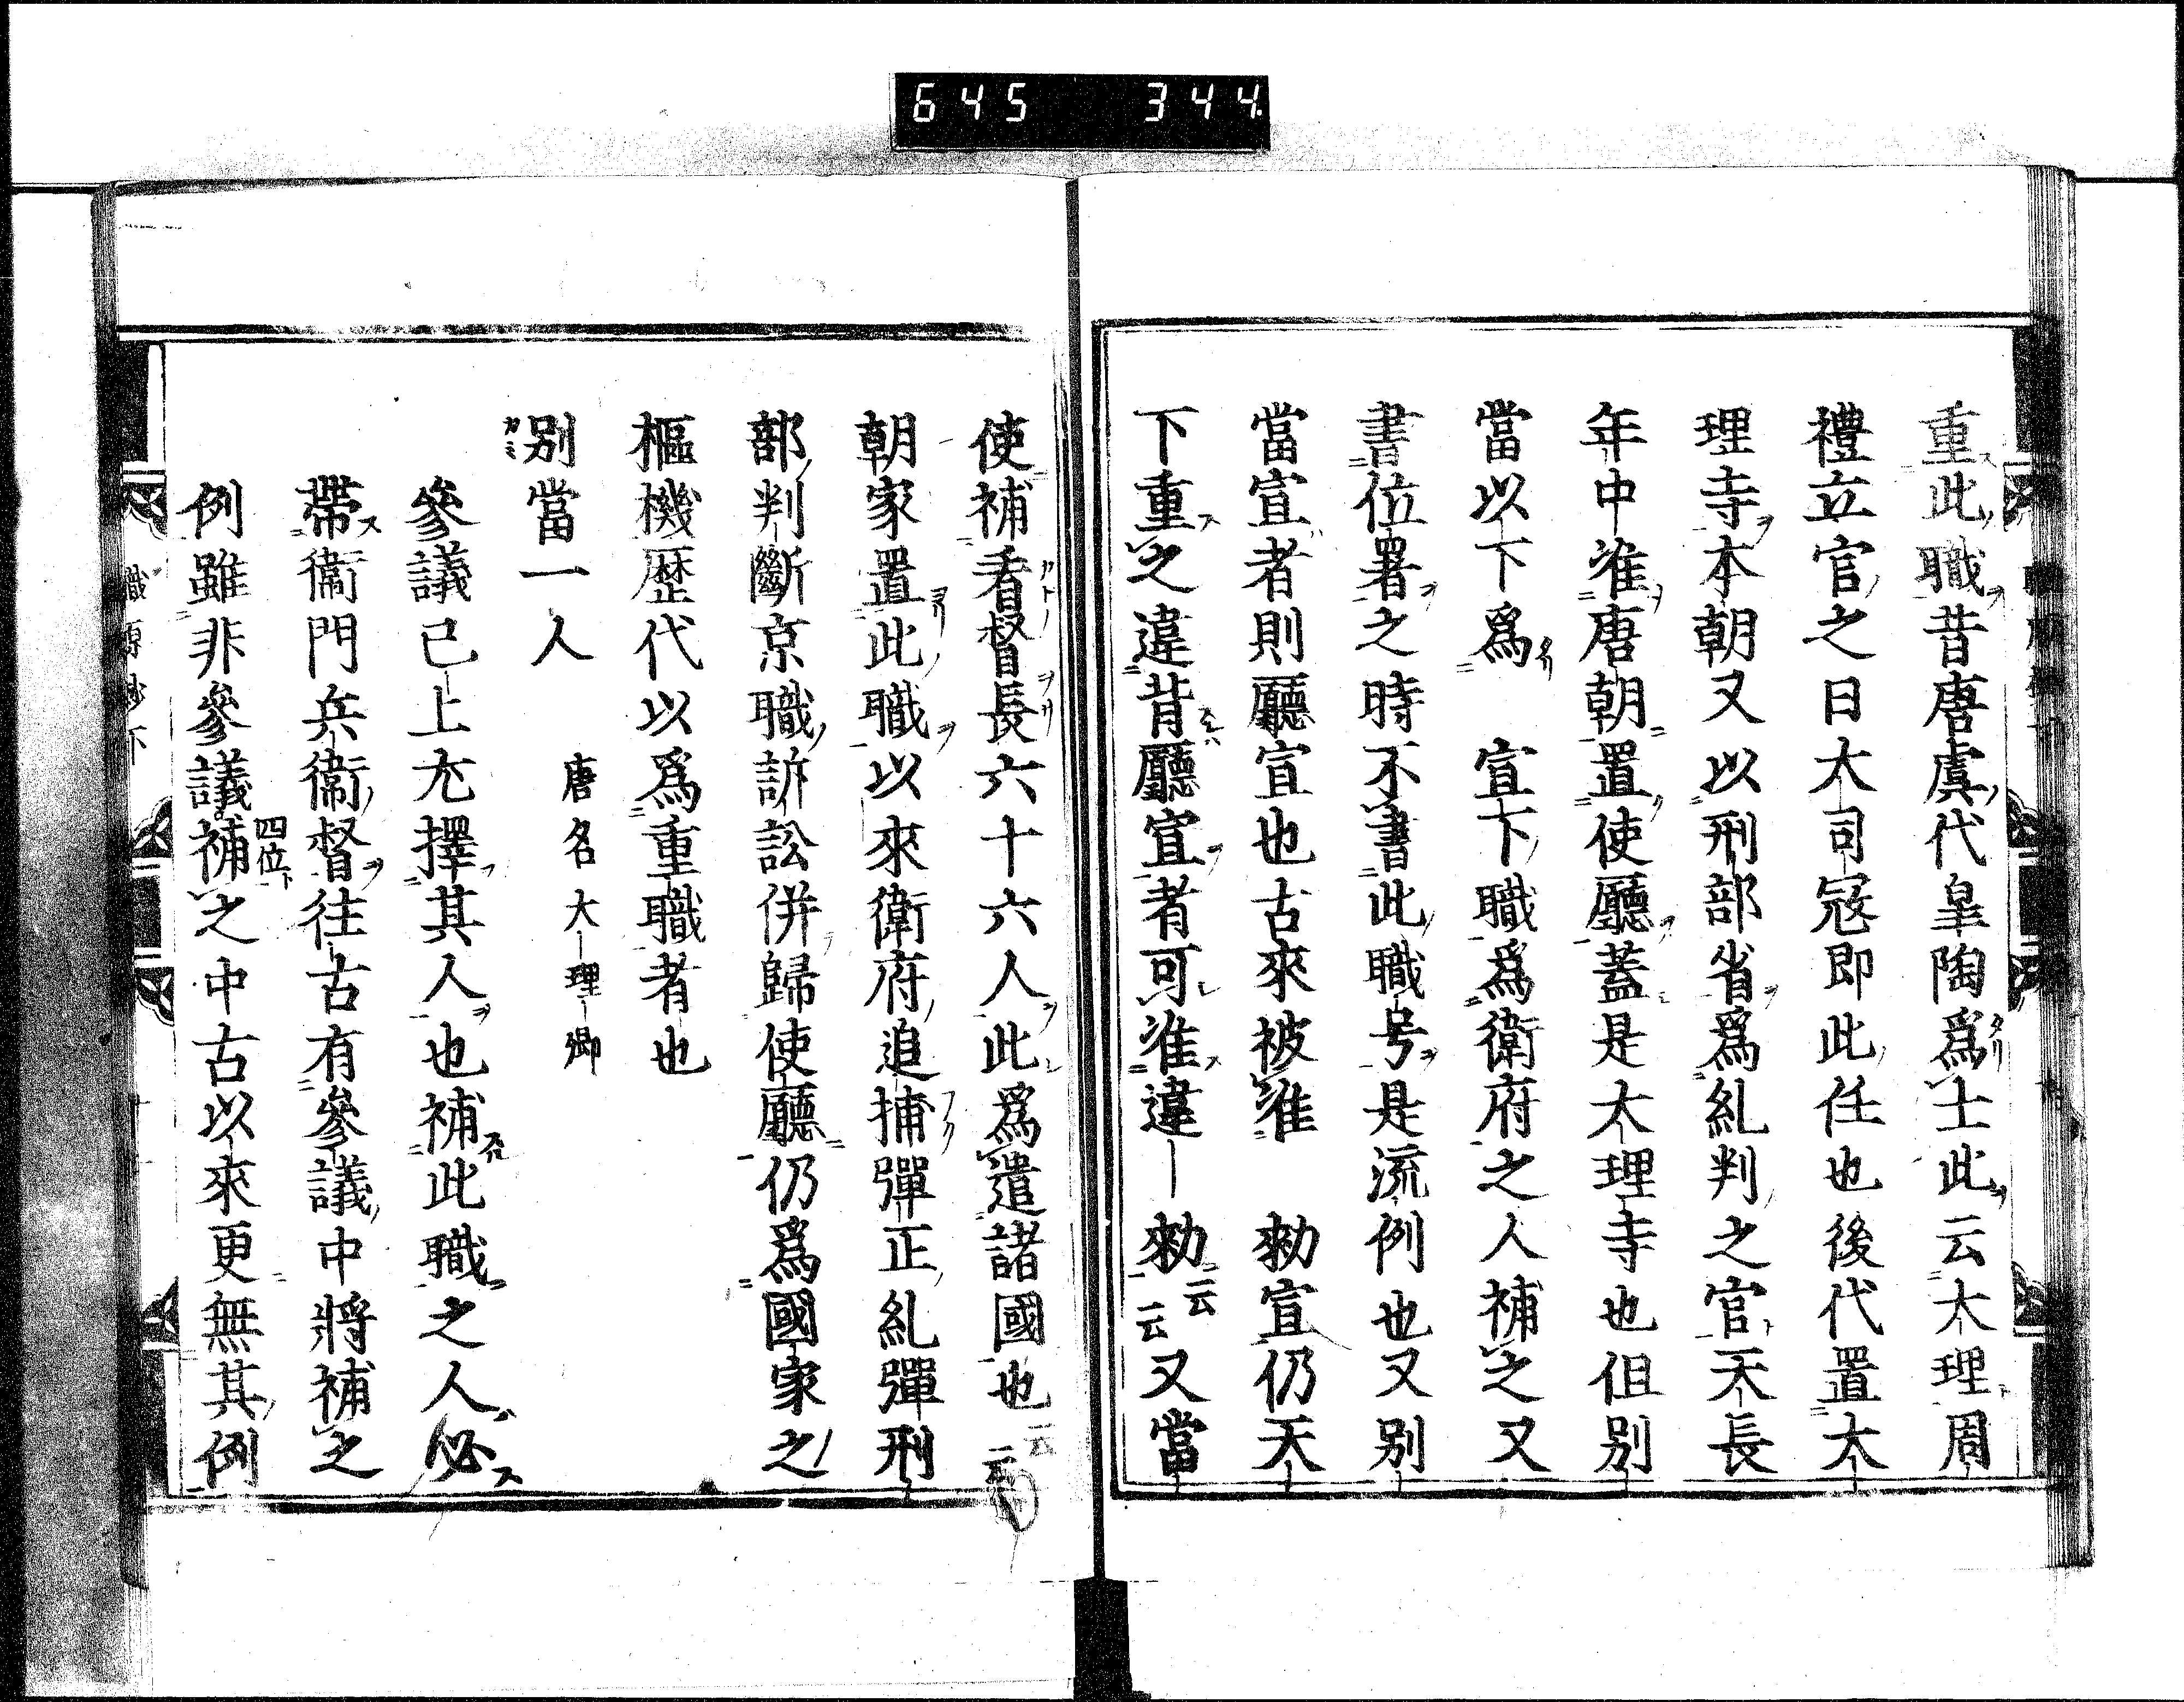 645 344
重此職昔唐虞代皐陶爲士此云大理周
禮立官之日大司寇即此任也後代置大
理寺本朝又以刑部省爲糺判之官天長
年中准唐朝置使廳蓋是大理寺也但別
當以下爲　宣下職爲衛府之人補之又
書位署之時不書此職号是流例也又別
當宣者則廳宣也古來被准　勅宣仍天
下重之違背廳宣者可准違｜勅云云又當
使補看督長六十六人此爲遣諸國也云云
朝家置此職以來衛府追捕彈正糺彈刑
部判斷京職訴訟併歸使廳仍爲國家之
樞機歷代以爲重職者也
別當一人　唐名大理卿
參議已上尤擇其人也補此職之人必
帶衞門兵衞督往古有參議中將補之
例雖非參議四位補之中古以來更無其例
職原抄下